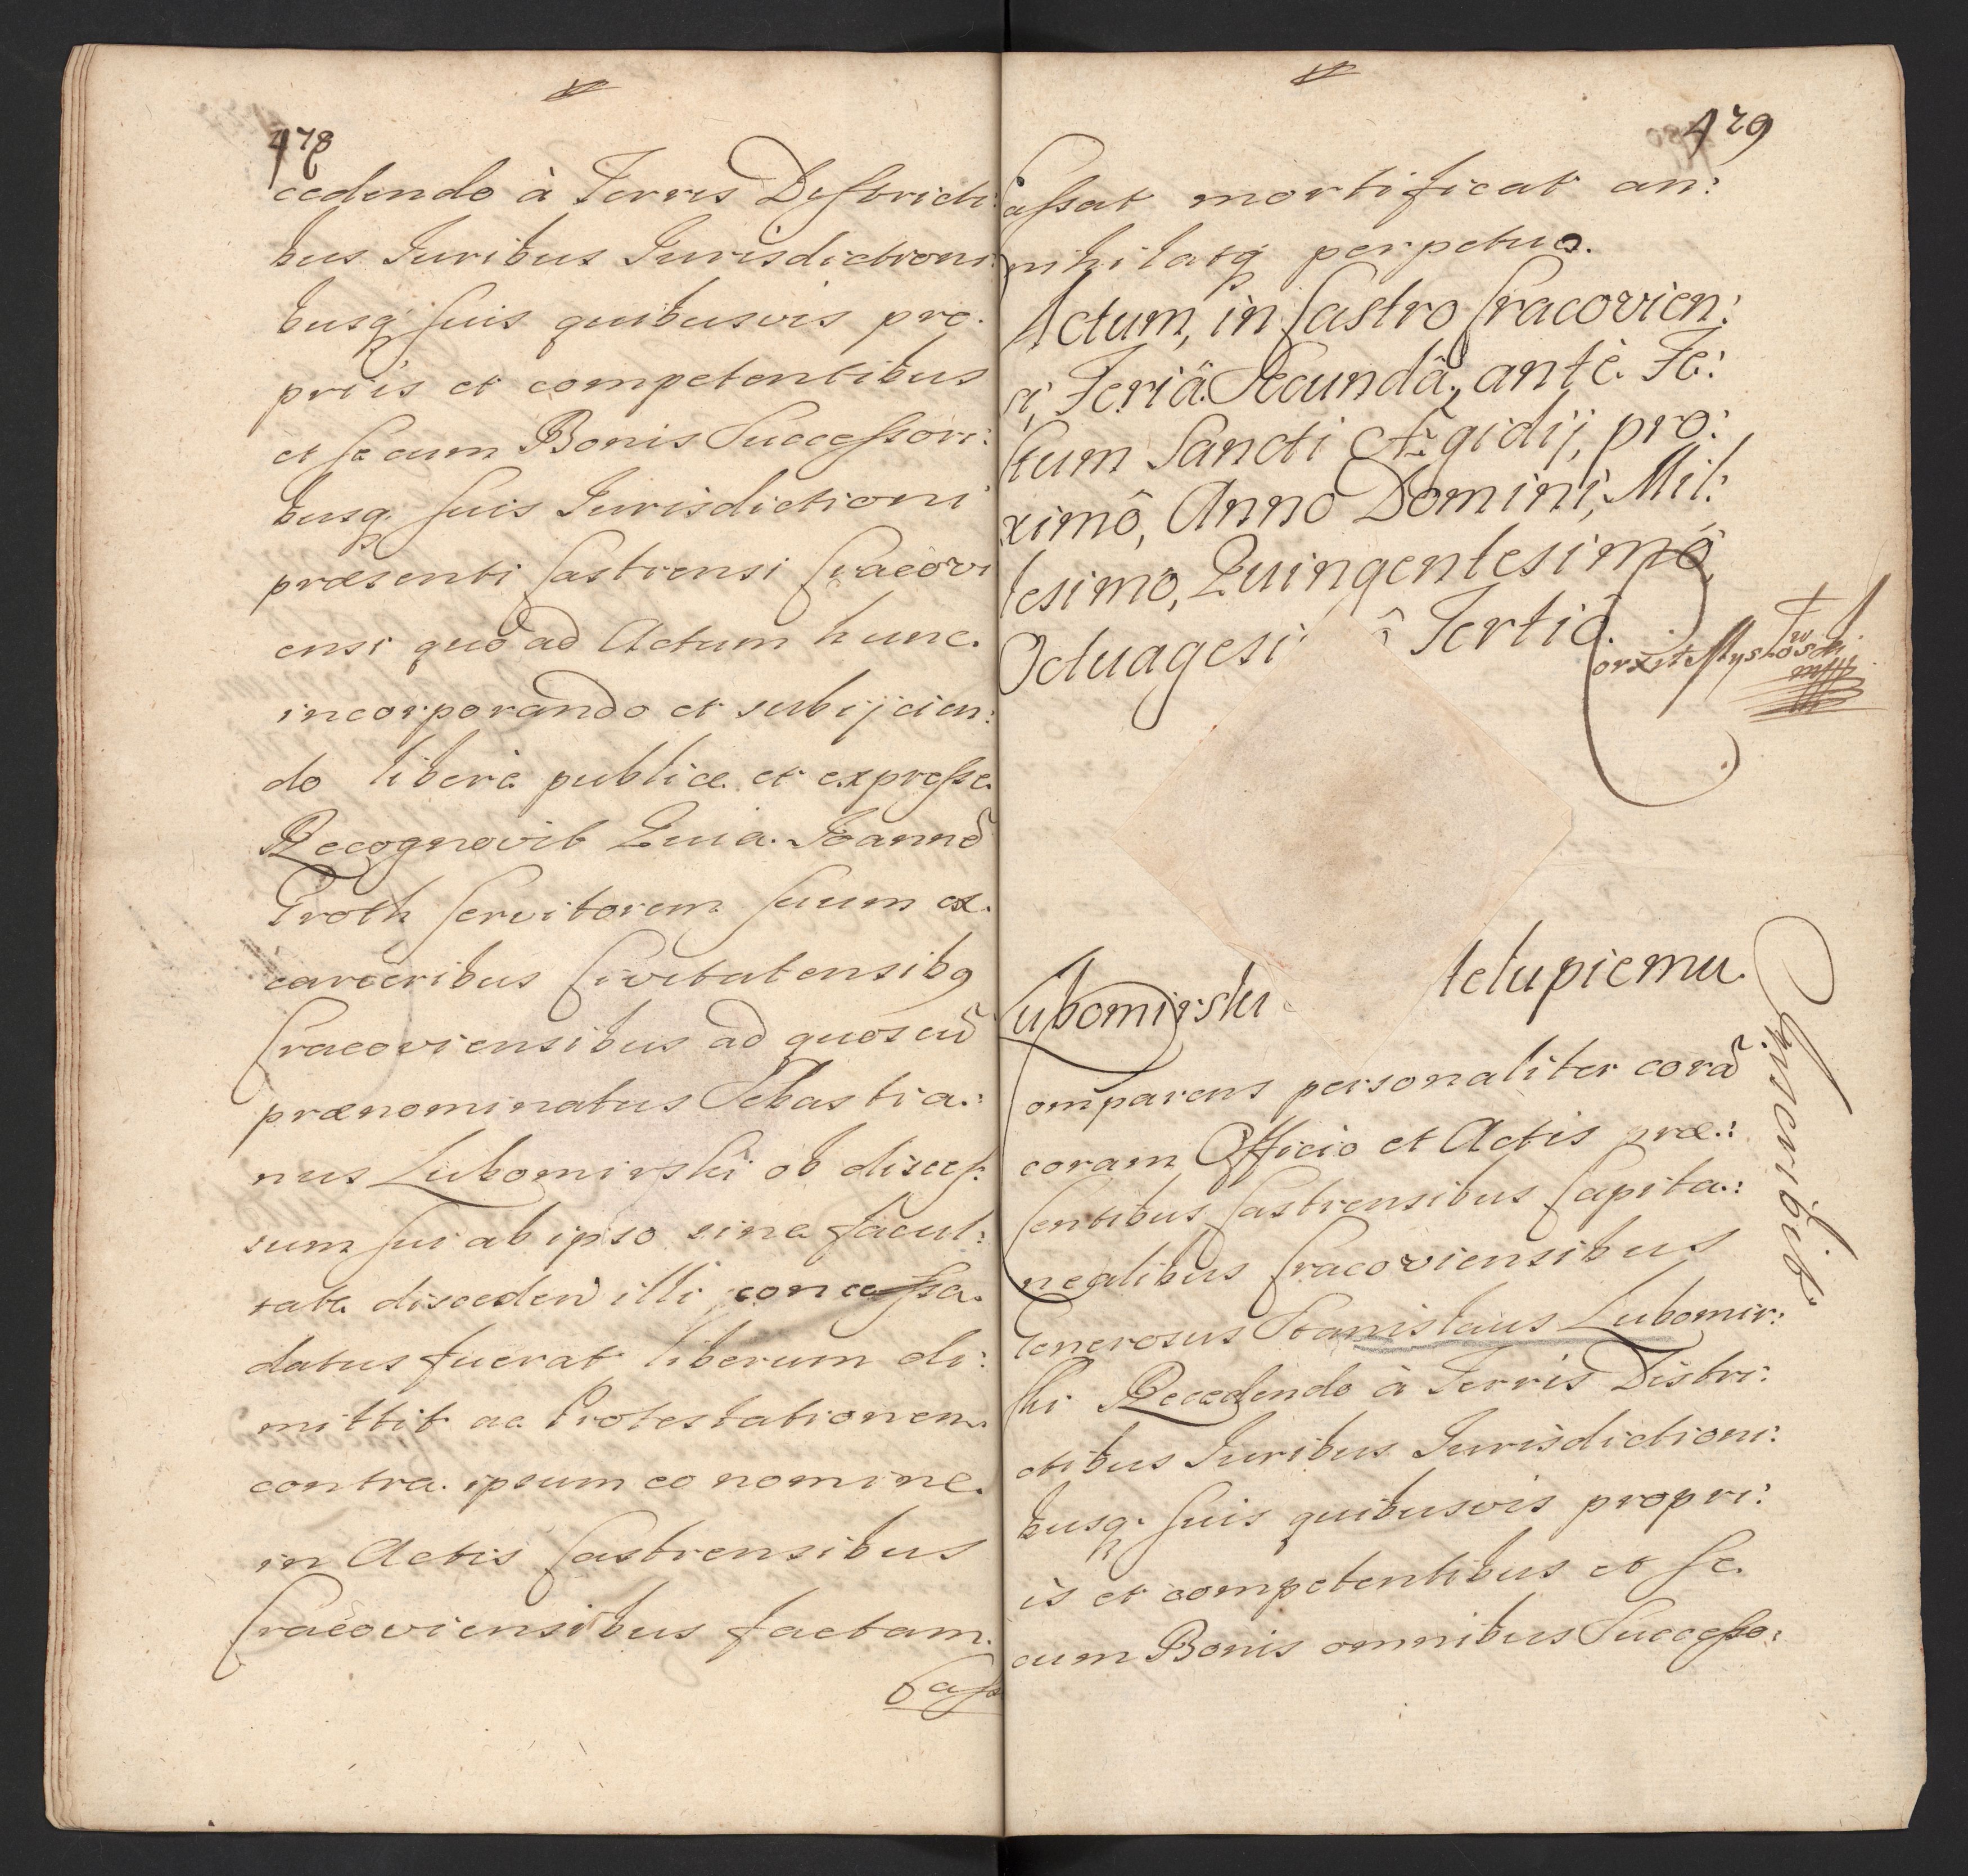 478
cedendo à Terris Destricti:
bus Iuribus Iurisdictioni:
busq. suis quibusvis pro:
priis et competentibus
et se cum Bonis Successori:
busq. suis Iurisdictioni
præsenti Castrensi Cracovi
ensi quo ad Actum hunc
incorporando et subijcien:
do liberè publicè et expresse
Recognovit Quia Joannẽ
Troth servitorem suum ex
carceribus Civitatensibq
Cracoviensibus ad quos cũ
prænominatus Sebastia:
nus Lubomirski ob disces:
sum sui ab ipso sine facul:
tate discedendi illi concessa
datus fuerat liberum di:
mittit ac Protestationem
contra ipsum eo nomine
in Actis Castrensibus
Cracoviensibus factam
Cass
479
assat mortificat an:
nihilatq. perpetuo.
Actum, in Castro Cracovien:
si, Feriâ Secundâ, antè Fe:
stum Sancti Ægidij, pro:
ximô, Anno Domini, Mil:
lesimo, Quingentesimô
Octuagesi ô Tertiô.
Lubomirski telupiemu
omparens personaliter corã
coram Officio et Actis præ:
sentibus Castrensibus Capita:
nealibus Cracoviensibus
Generosus Stanislaus Lubomir:
ski Recedendo à Terris Distri:
ctibus Iuribus Iurisdictioni:
busq. suis quibusvis propri:
is et competentibus et se
cum Bonis omnibus Successo:
Inscribit